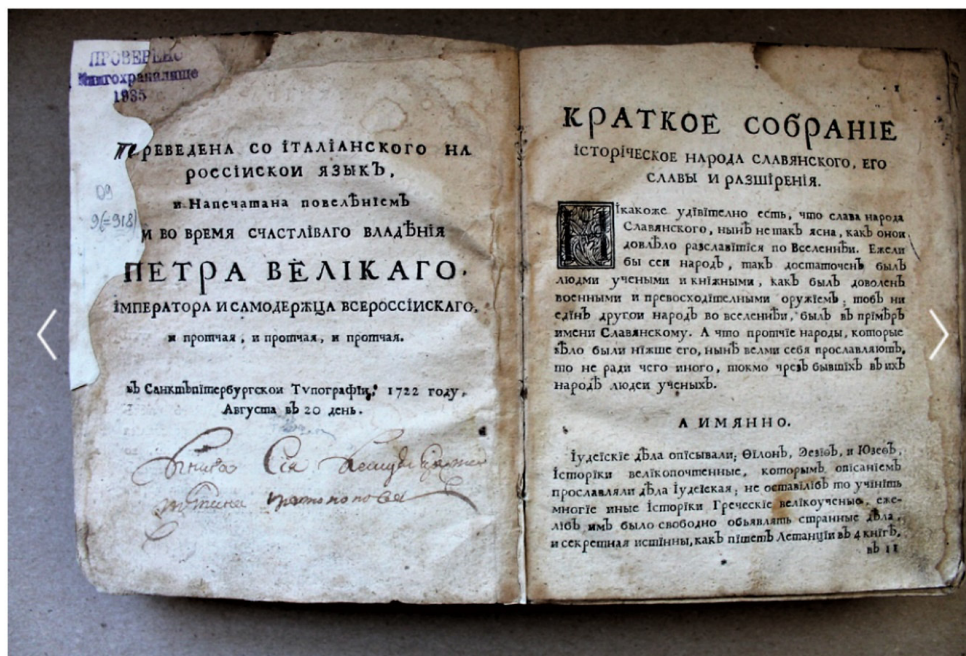 ПРОВЕРЕНО
Книгохранилище
1985
09
9(=918)
ПЕРЕВЕДЕНА СО ІТАЛІАНСКОГО НА
РОССІИСКОИ ЯЗЫКЪ,
и Напечатана повелѢніемЪ
И ВО ВРЕМЯ СЧАСТЛІВАГО ВЛАДѢНІЯ
ПЕТРА ВЕЛІКАГО,
ІМПЕРАТОРА И САМОДЕРЖЦА ВСЕРОССІИСКАГО,
и протчая, и протчая, и протчая.
вЪ СанктЪпітербургскои Тѵпографіи, 1722 году,
Августа вЪ 20 день.
Книга Сия
протопопова
1
КРАТКОЕ СОБРАНІЕ
ІСТОРІЧЕСКОЕ НАРОДА СЛАВЯНСКОГО, ЕГО
СЛАВЫ И РАЗШІРЕНІЯ.
Нікакоже удівітелно есть, что слава народа
Славянского, нынѢ не такЪ ясна, какЪ онои
довлѢло разславітіся по ВселеннѢи. Ежели
бы сеи народЪ, такЪ достаточенЪ былЪ
людми учеными и книжными, какЪ былЪ доволенЪ
военными и превосходітелными оружіемЪ; тобЪ ни
едінЪ другои народЪ во вселеннѢи, былЪ вЪ прімѢрЪ
имени Славянскому. А что протчіе народы, которые
зѢло были ніжше его, нынѢ велми себя прославляютЪ,
то не ради чего иного, токмо чрезЪ бывшіхЪ вЪ ихЪ
народѢ людеи ученыхЪ.
А ИМЯННО.
Іудеіскіе дѢла опісывали; ѲілонЪ, ЭгезіѳЪ, и ЮзеѳЪ,
Історіки велікопочтенные, которымЪ опісаніемЪ
прославляли дѢла Іудеіская; не оставілібЪ то учініть
многіе иные Історіки Греческіе велікоученые, еже-
лібЪ имЪ было свободно обьявлять странные дѢла,
и секретная истінны, какЪ пішетЪ Летанціи вЪ 4 книгѢ,
вЪ 11